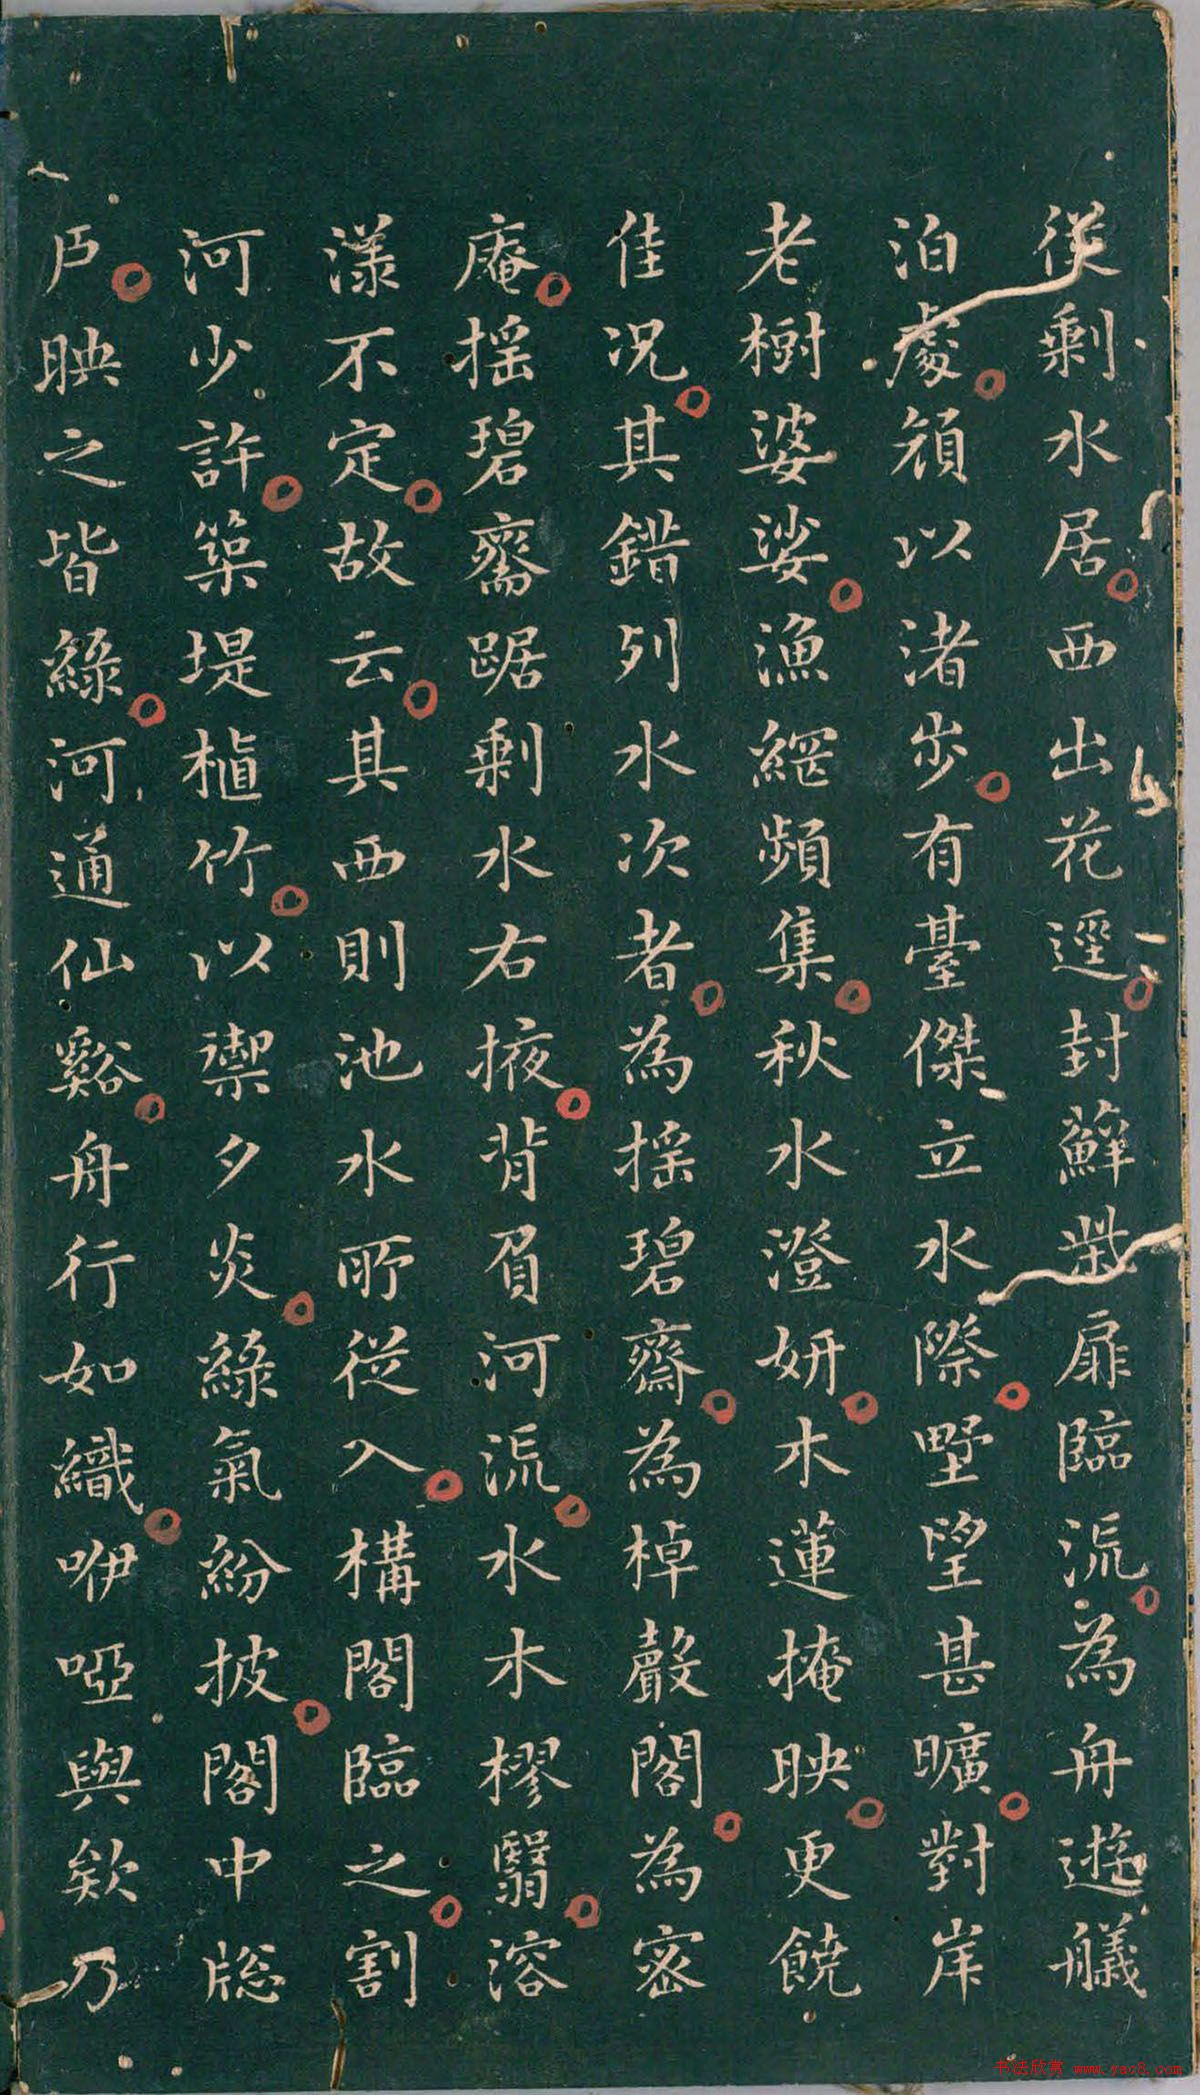 從剩水居西出花逕封蘚柴扉臨流為舟遊艤
泊處以渚步有臺傑立水際野望甚曠對岸
老樹婆娑漁網頻集秋水澄妍木蓮掩映更饒
佳況其錯列水次者為搖碧齋為棹聲閣為密
庵搖碧齋踞剩水右掖背負河流水木樛翳溶
漾不定故云其西則池水所從入構閣臨之割
河少許築堤植竹以禦夕炎綠氣紛披閣中牕
戶映之皆綠河通仙谿舟行如織咿啞與欸乃
书法欣赏 www.yac8.com